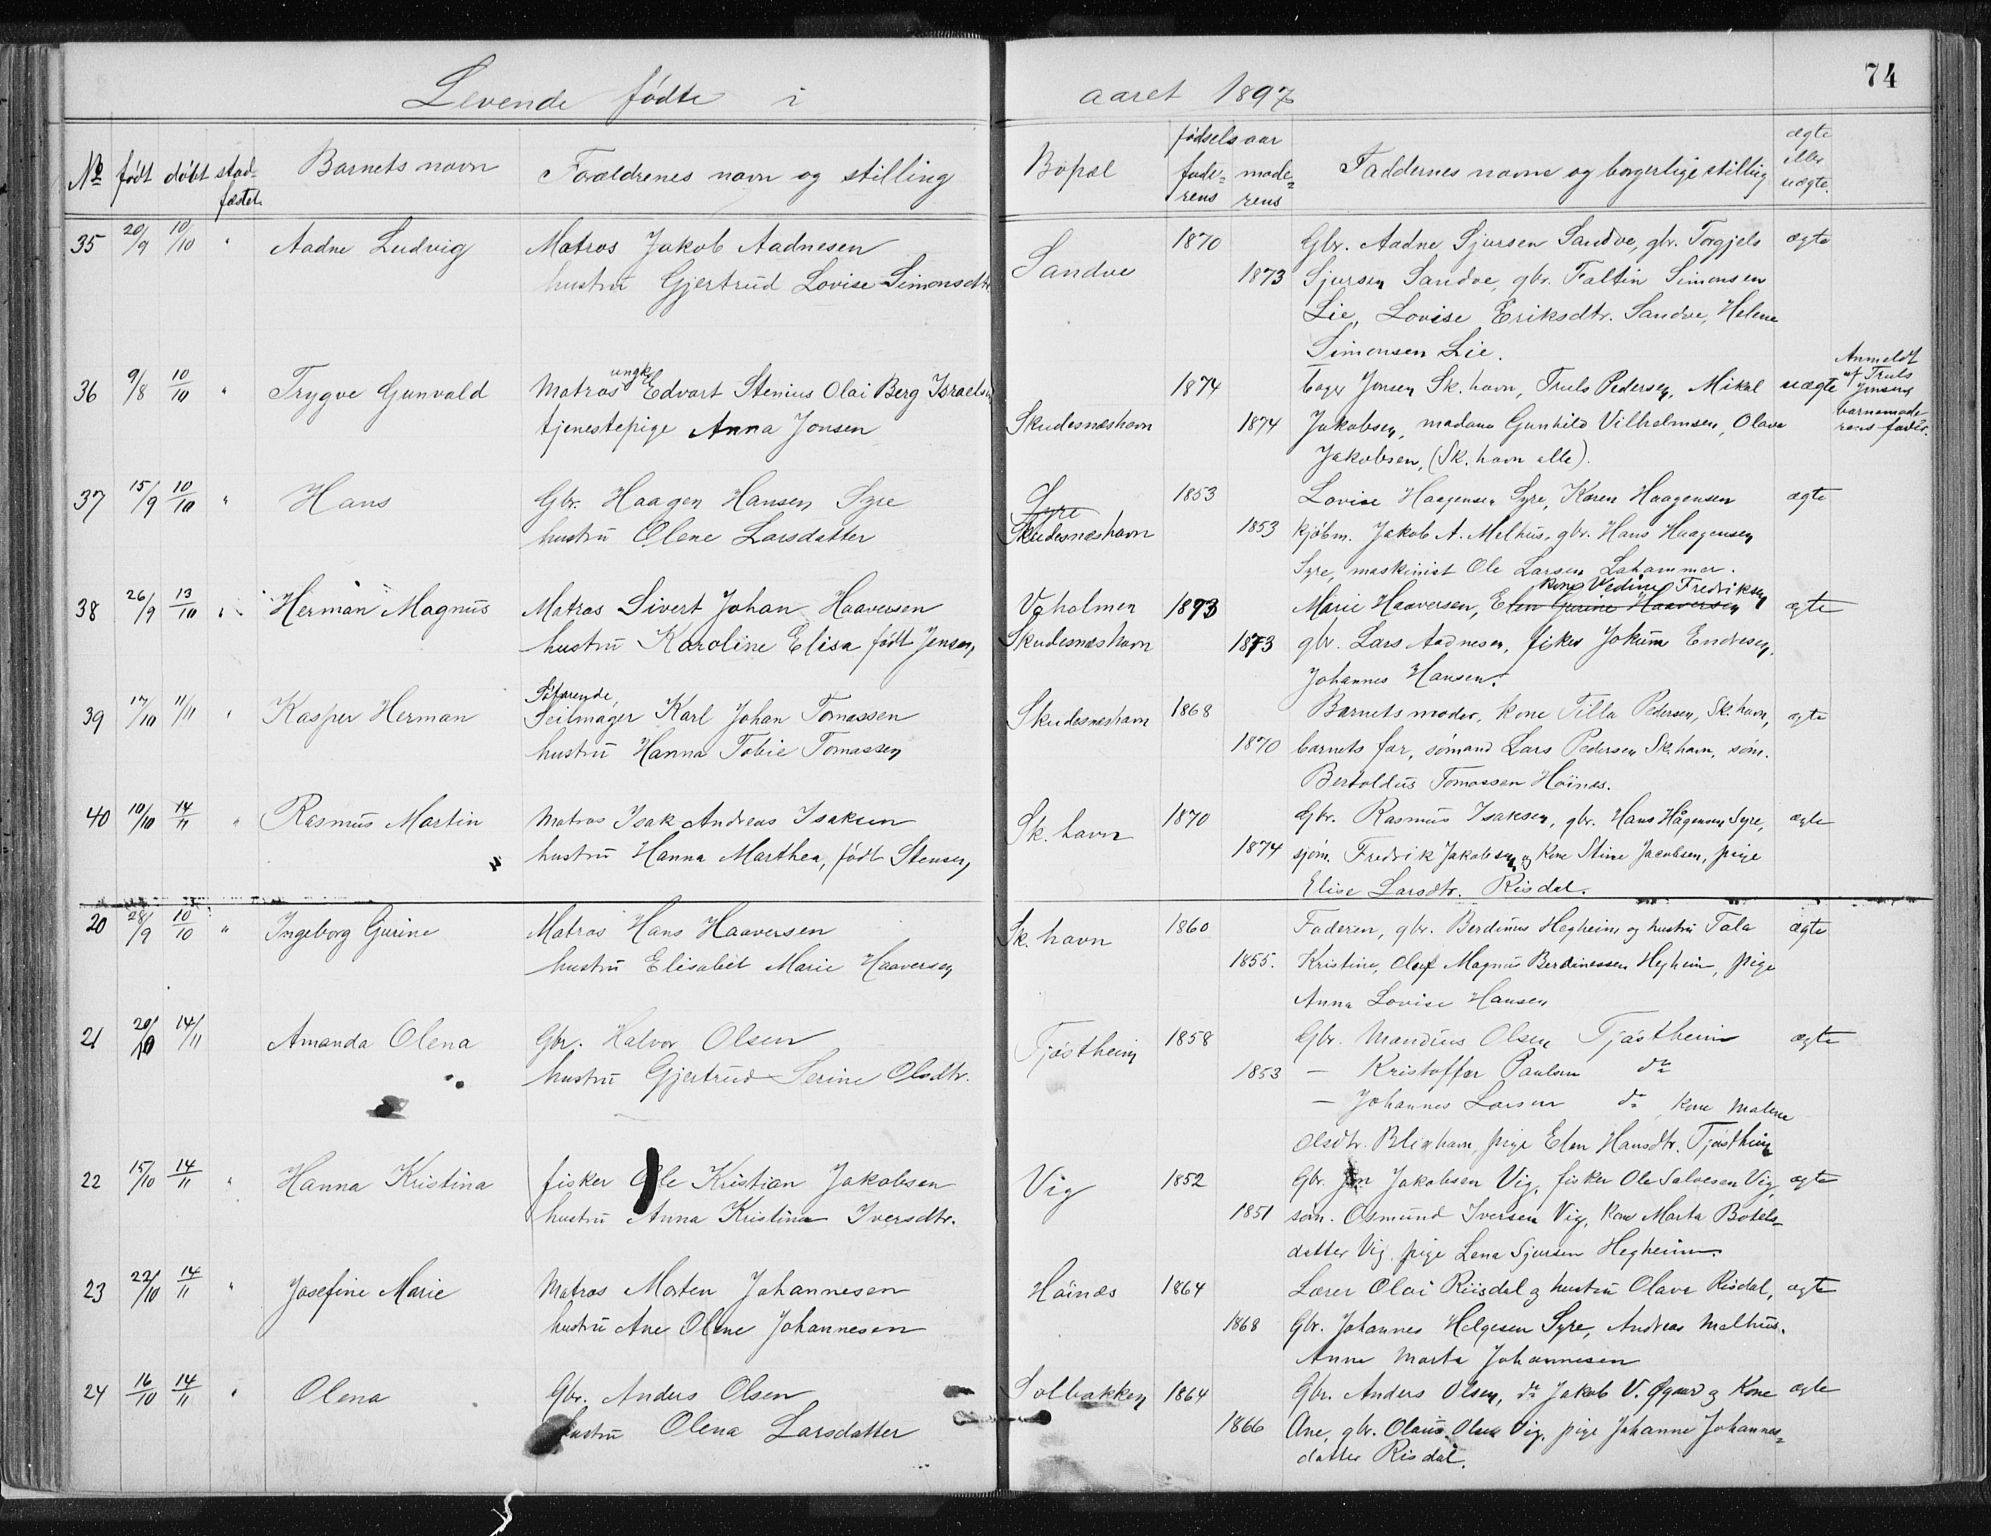 74
Levende fødte i aaret 1897
No født døbt stadfæstet Barnets navn Forældrenes navn og stilling Bopæl fødselsaar faderens moderens Faddernes navne og borgerlige stilling ægte eller uægte
35 20/9 10/10 " Aadne Ludvig Matros Jakob Aadnesen Sandve 1870 Gbr. Aadne Sjursen Sandve, gbr. Torgjels ægte
hustru Gjertrud Lovise Simonsdtr 1873 Sjursen Sandve, gbr. Faltin Simonsen
Lie, Lovise Eriksdtr. Sandve, Helene
Simonsen Lie.
36 9/8 10/10 " Trygve Gunvald Matros ungk. Edvart Stenius Olai Berg Israelsen 1874 Jonsen Sk. havn, Truls Pedersen, Mikal uægte Anmeldt af Truls Jonsen barnemoderens fader.
tjenestepige Anna Jonsen Skudesneshavn 1874 Jakobsen, madame Gunhild Vilhelmsen, Olava
Jakobsen, (Sk. havn alle).
37 15/9 10/10 " Hans Gbr. Haagen Hansen Syre Syre 1853 Lovise Haagensen Syre, Karen Haagensen ægte
hustru Olene Larsdatter Skudesneshavn 1853 kjøbm. Jakob A. Melhus, gbr. Hans Haagensen
Syre, maskinist Ole Larsen Lahammer.
38 26/9 13/10 " Herman Magnus Matros Sivert Johan Haaversen Vaholmen 1873 Marie Haaversen, Elen Gurine Haaversen kone Vedine Fredriksen ægte
hustru Karoline Elisa født Jensen, Skudesneshavn 1873 gbr. Lars Aadnesen, fisker Jokum Endresen,
Johannes Hansen.
39 17/10 11/11 " Kasper Herman Søfarende, Seilmager Karl Johan Tomassen Skudesneshavn 1868 Barnets moder, kone Tilla Pedersen, Sk. havn, ægte
hustru Hanna Tobie Tomassen 1870 barnets far, sømand Lars Pedersen Sk. havn, søm.
Bertoldus Tomassen Høinæs.
40 10/10 14/11 " Rasmus Martin Matros Isak Andreas Isaksen Sk. havn 1870 Gbr. Rasmus Isaksen, gbr. Hans Hågensen Syre, ægte
hustru Hanna Marthea, født Stensen, 1874 sjøm. Fredrik Jakobsen og Kone Stine Jacobsen, pige
Elise Larsdtr. Risdal.
20 28/9 10/10 " Ingeborg Gurine Matros Hans Haaversen Sk. havn 1860 Faderen, gbr. Berdinus Hegheim og hustru Tala ægte
hustru Elisabet Marie Haaversen 1855. Kristine, Oluf Magnus Berdinessen Hegheim, pige
Anna Lovise Hansen
21 20/10 14/11 Amanda Olena Gbr. Halvor Olsen Tjøstheim 1858 Gbr. Mandius Olsen Tjøstheim ægte
hustru Gjertrud Serine Olsdtr. 1853 — Kristoffer Paulsen do
— Johannes Larsen do, kone Malene
Olsdtr. Blixhavn, pige Elen Hansdtr. Tjøstheim
22 15/10 14/11 " Hanna Kristina fisker Ole Kristian Jakobsen Vig 1852 Gbr. Jon Jakobsen Vig, fisker Ole Salvesen Vig, ægte
hustru Anna Kristina Iversdtr. 1851 søm. Osmund Iversen Vig, Kone Marta Botels-
datter Vig, pige Lena Sjursen Hegheim.
23 22/10 14/11 " Josefine Marie Matros Morten Johannesen Høinæs 1864 Lærer Olai Riisdal og hustru Olava Risdal, ægte
hustru Ane Oline Johannesen 1868 Gbr. Johannes Helgesen Syre, Andreas Melhus.
Anne Marta Johannesen
24 16/10 14/11 " Olena Gbr. Anders Olsen Solbakken 1864 Gbr. Anders Olsen, do Jakob V. Øgaard og Kone ægte
hustru Olena Larsdatter 1866 Ane, gbr. Olaus Olsen Vig, pige Johanne Johannes-
datter Risdal.